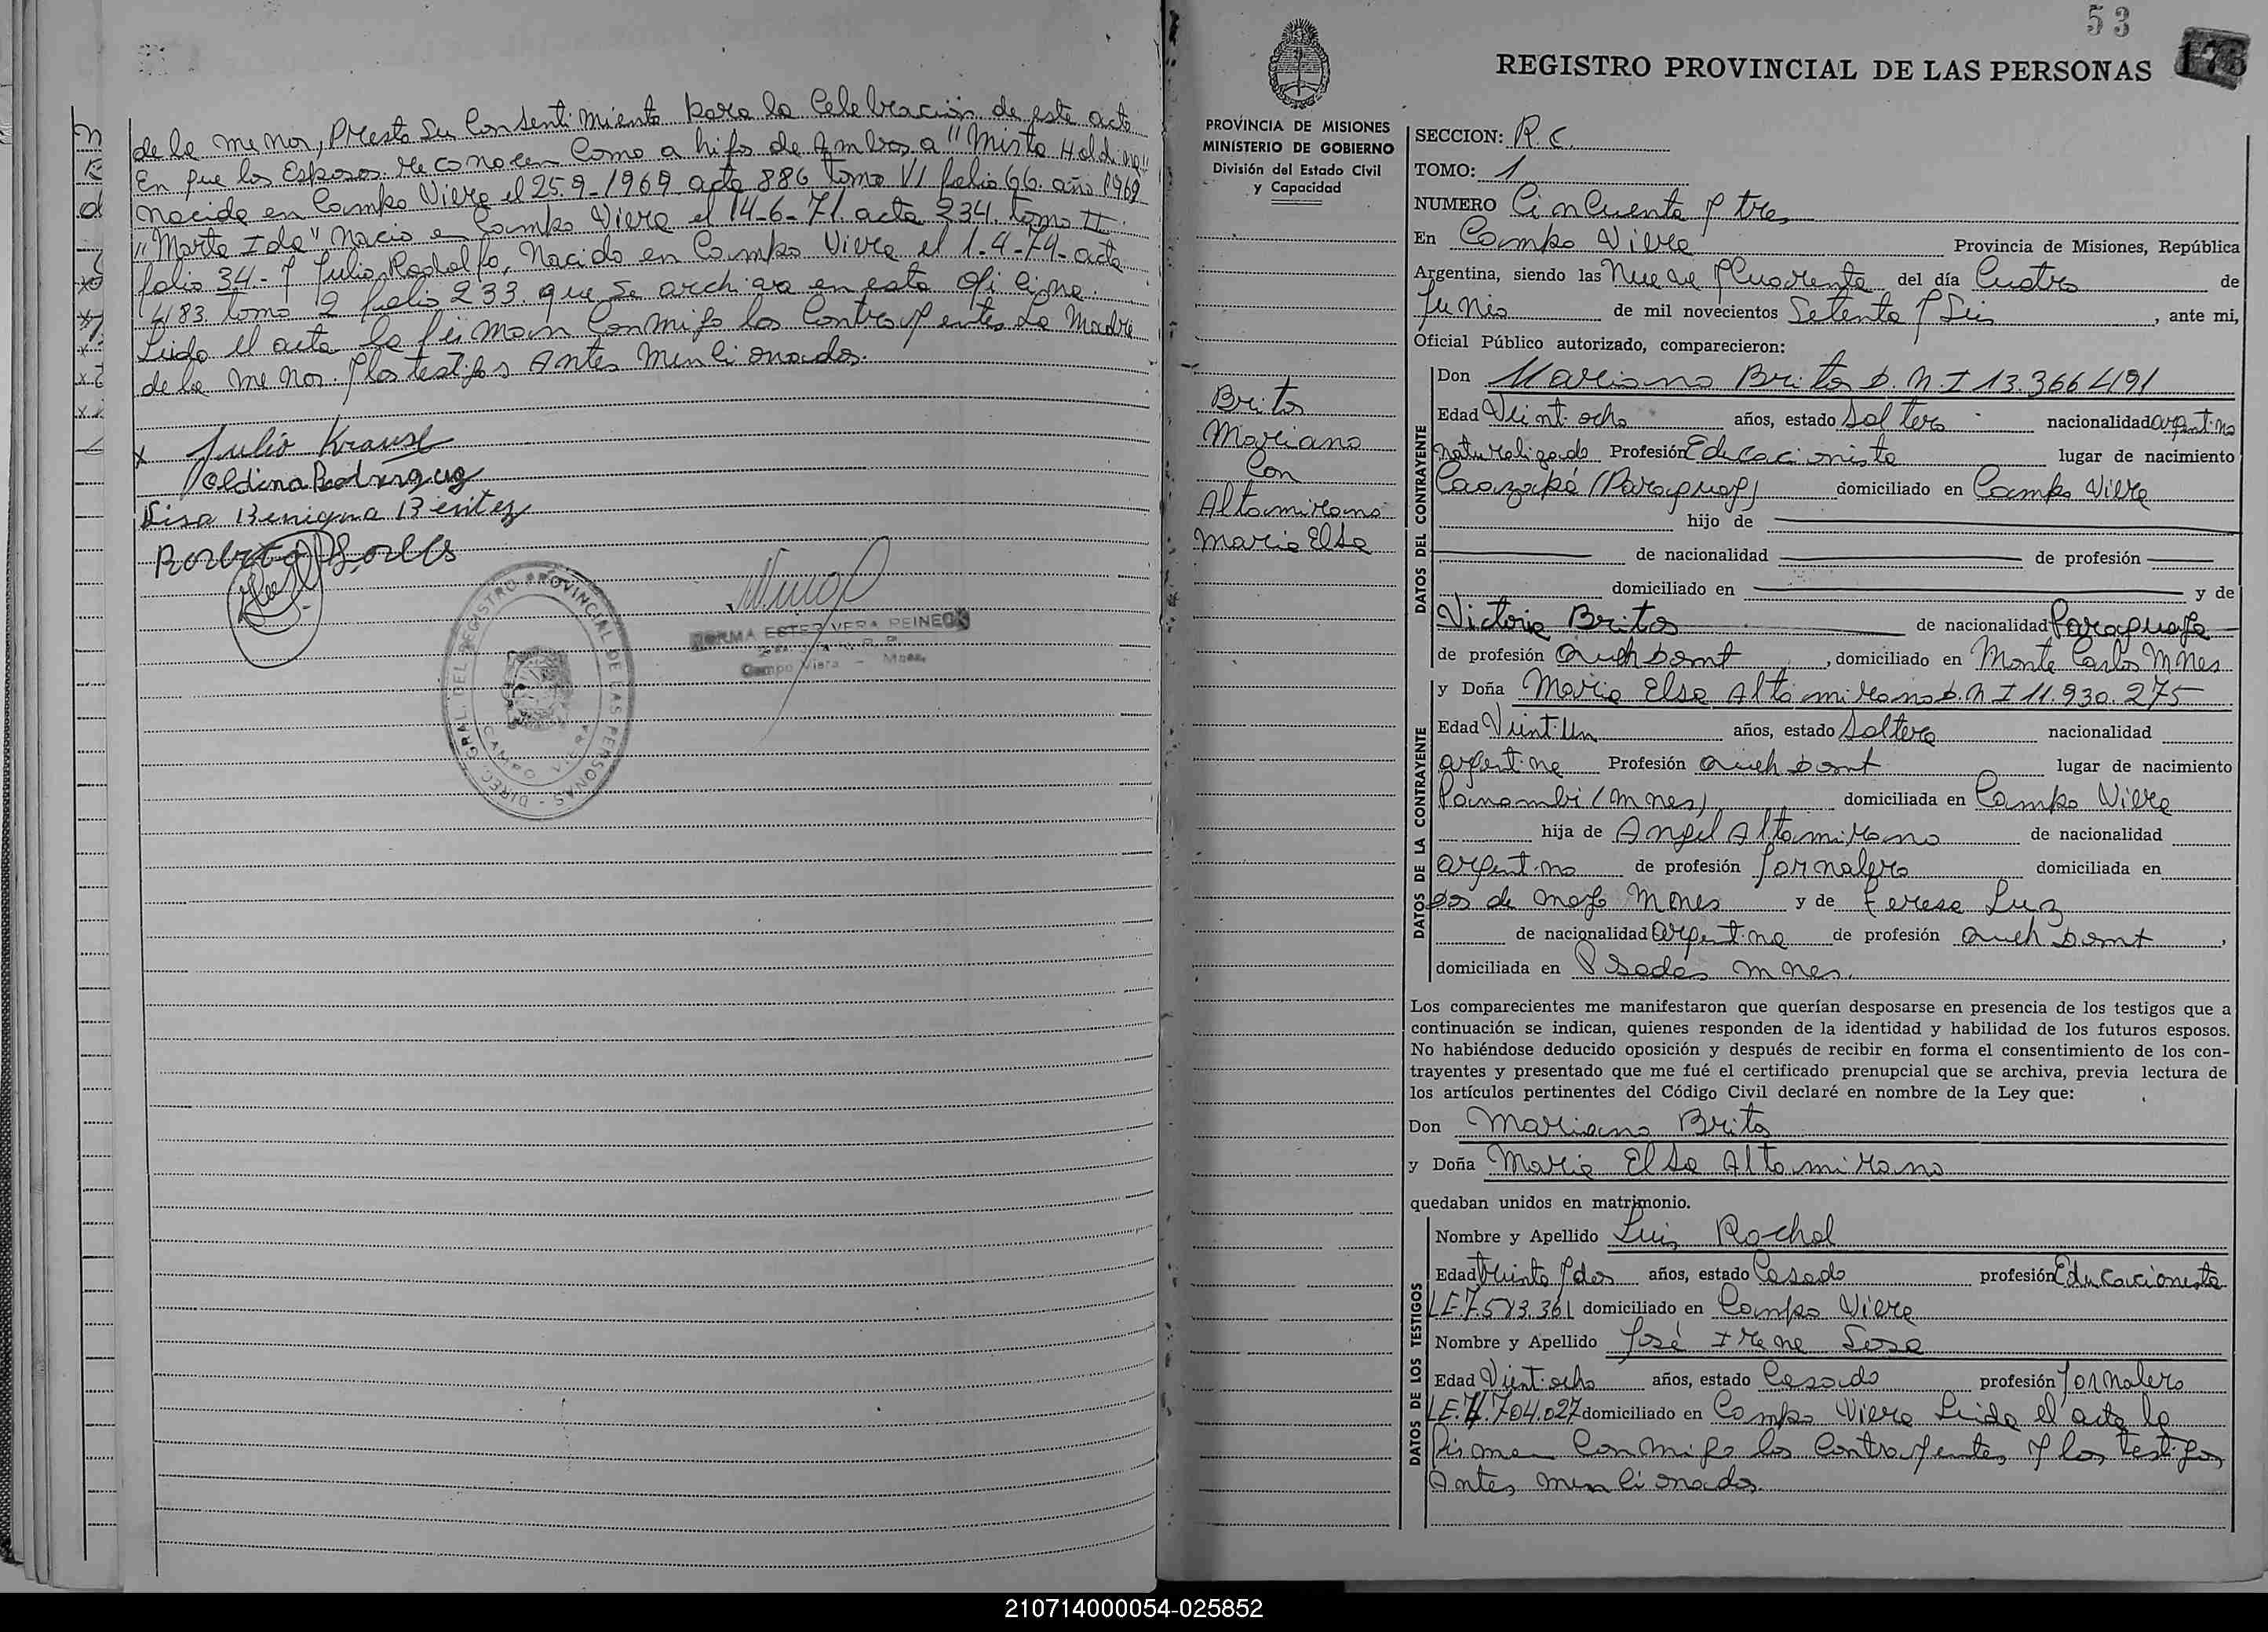 de la menor, Presta Su Consentimiento para la Celebración de este acto
En que los Esposos reconocen Como a hijos de Ambos a "Mirta Haldina"
Nacida en Campo Viera el 25-9-1969 acta 886 tomo VI folio 66. año 1969
"Marta Ida" Nació en Campo Viera el 14-6-71 acta 234. tomo II.
folio 34- y Julio Rodolfo, Nacido en Campo Viera el 1-4-74- acta
483 tomo 2 folio 233. que se archiva en esta oficina.
Leida el acta la firman Conmigo los Contrayentes La Madre
de la menor. y los testigos Antes Mencionados.
x Julio Krause
Leidina Rodriguez
Lisa Benigna Benitez
Roberto
DIREC. GRAL. DEL REGISTRO PROVINCIAL DE LAS PERSONAS -
CAMPO VIERA
NORMA ESTER VERA REINECK
Campo Viera - Mnes.
53
176
REGISTRO PROVINCIAL DE LAS PERSONAS
PROVINCIA DE MISIONES
MINISTERIO DE GOBIERNO
División del Estado Civil
y Capacidad
Brito
Mariano
Con
Altamirano
Maria Elsa
SECCION: R.C.
TOMO: 1
NUMERO Cincuenta y tres
En Campo Viera Provincia de Misiones, República
Argentina, siendo las Nueve y Cuarenta del día Cuatro de
Junio de mil novecientos Setenta y Seis, ante mi,
Oficial Público autorizado, comparecieron:
DATOS DEL CONTRAYENTE
Don Mariano Brito D.N.I 13.366.491
Edad Veintiocho años, estado Soltero nacionalidad argentino
naturalizado Profesión Educacionista lugar de nacimiento
Caazapá (Paraguay) domiciliado en Campo Viera
hijo de
de nacionalidad de profesión
domiciliado en y de
Victoria Brito de nacionalidad Paraguaya
de profesión Queh Domt, domiciliado en Monte Carlos Mnes
DATOS DE LA CONTRAYENTE
y Doña Maria Elsa Altamirano D.N.I 11.930.275
Edad Veintiun años, estado Soltera nacionalidad
argentina Profesión Queh Domt lugar de nacimiento
Panambi (Mnes) domiciliada en Campo Viera
hija de Angel Altamirano de nacionalidad
argentino de profesión Jornalero domiciliada en
dos de mayo Mnes y de Teresa Luz
de nacionalidad argentina de profesión Queh Domt,
domiciliada en Psadas Mnes.
Los comparecientes me manifestaron que querían desposarse en presencia de los testigos que a
continuación se indican, quienes responden de la identidad y habilidad de los futuros esposos.
No habiéndose deducido oposición y después de recibir en forma el consentimiento de los con-
trayentes y presentado que me fué el certificado prenupcial que se archiva, previa lectura de
los artículos pertinentes del Código Civil declaré en nombre de la Ley que:
Don Mariano Brito
y Doña Maria Elsa Altamirano
quedaban unidos en matrimonio.
DATOS DE LOS TESTIGOS
Nombre y Apellido Luis Rochol
Edad treinta y dos años, estado Casado profesión Educacionista
LE.7.583.361 domiciliado en Campo Viera
Nombre y Apellido José Irene Sosa
Edad Vientiocho años, estado Casado profesión Jornalero
LE.7.704.027 domiciliado en Campo Viera Leida el acta la
firman Conmigo los Contrayentes y los testigos
Antes mencionados.
210714000054-025852